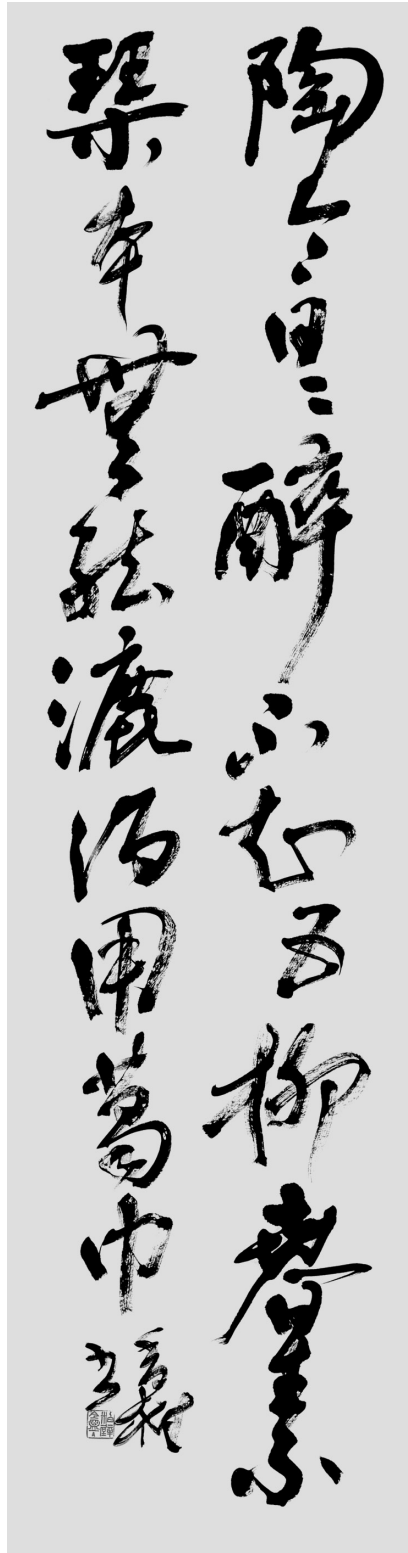 陶令日日醉不知五柳春素
琴本无弦漉酒用葛巾